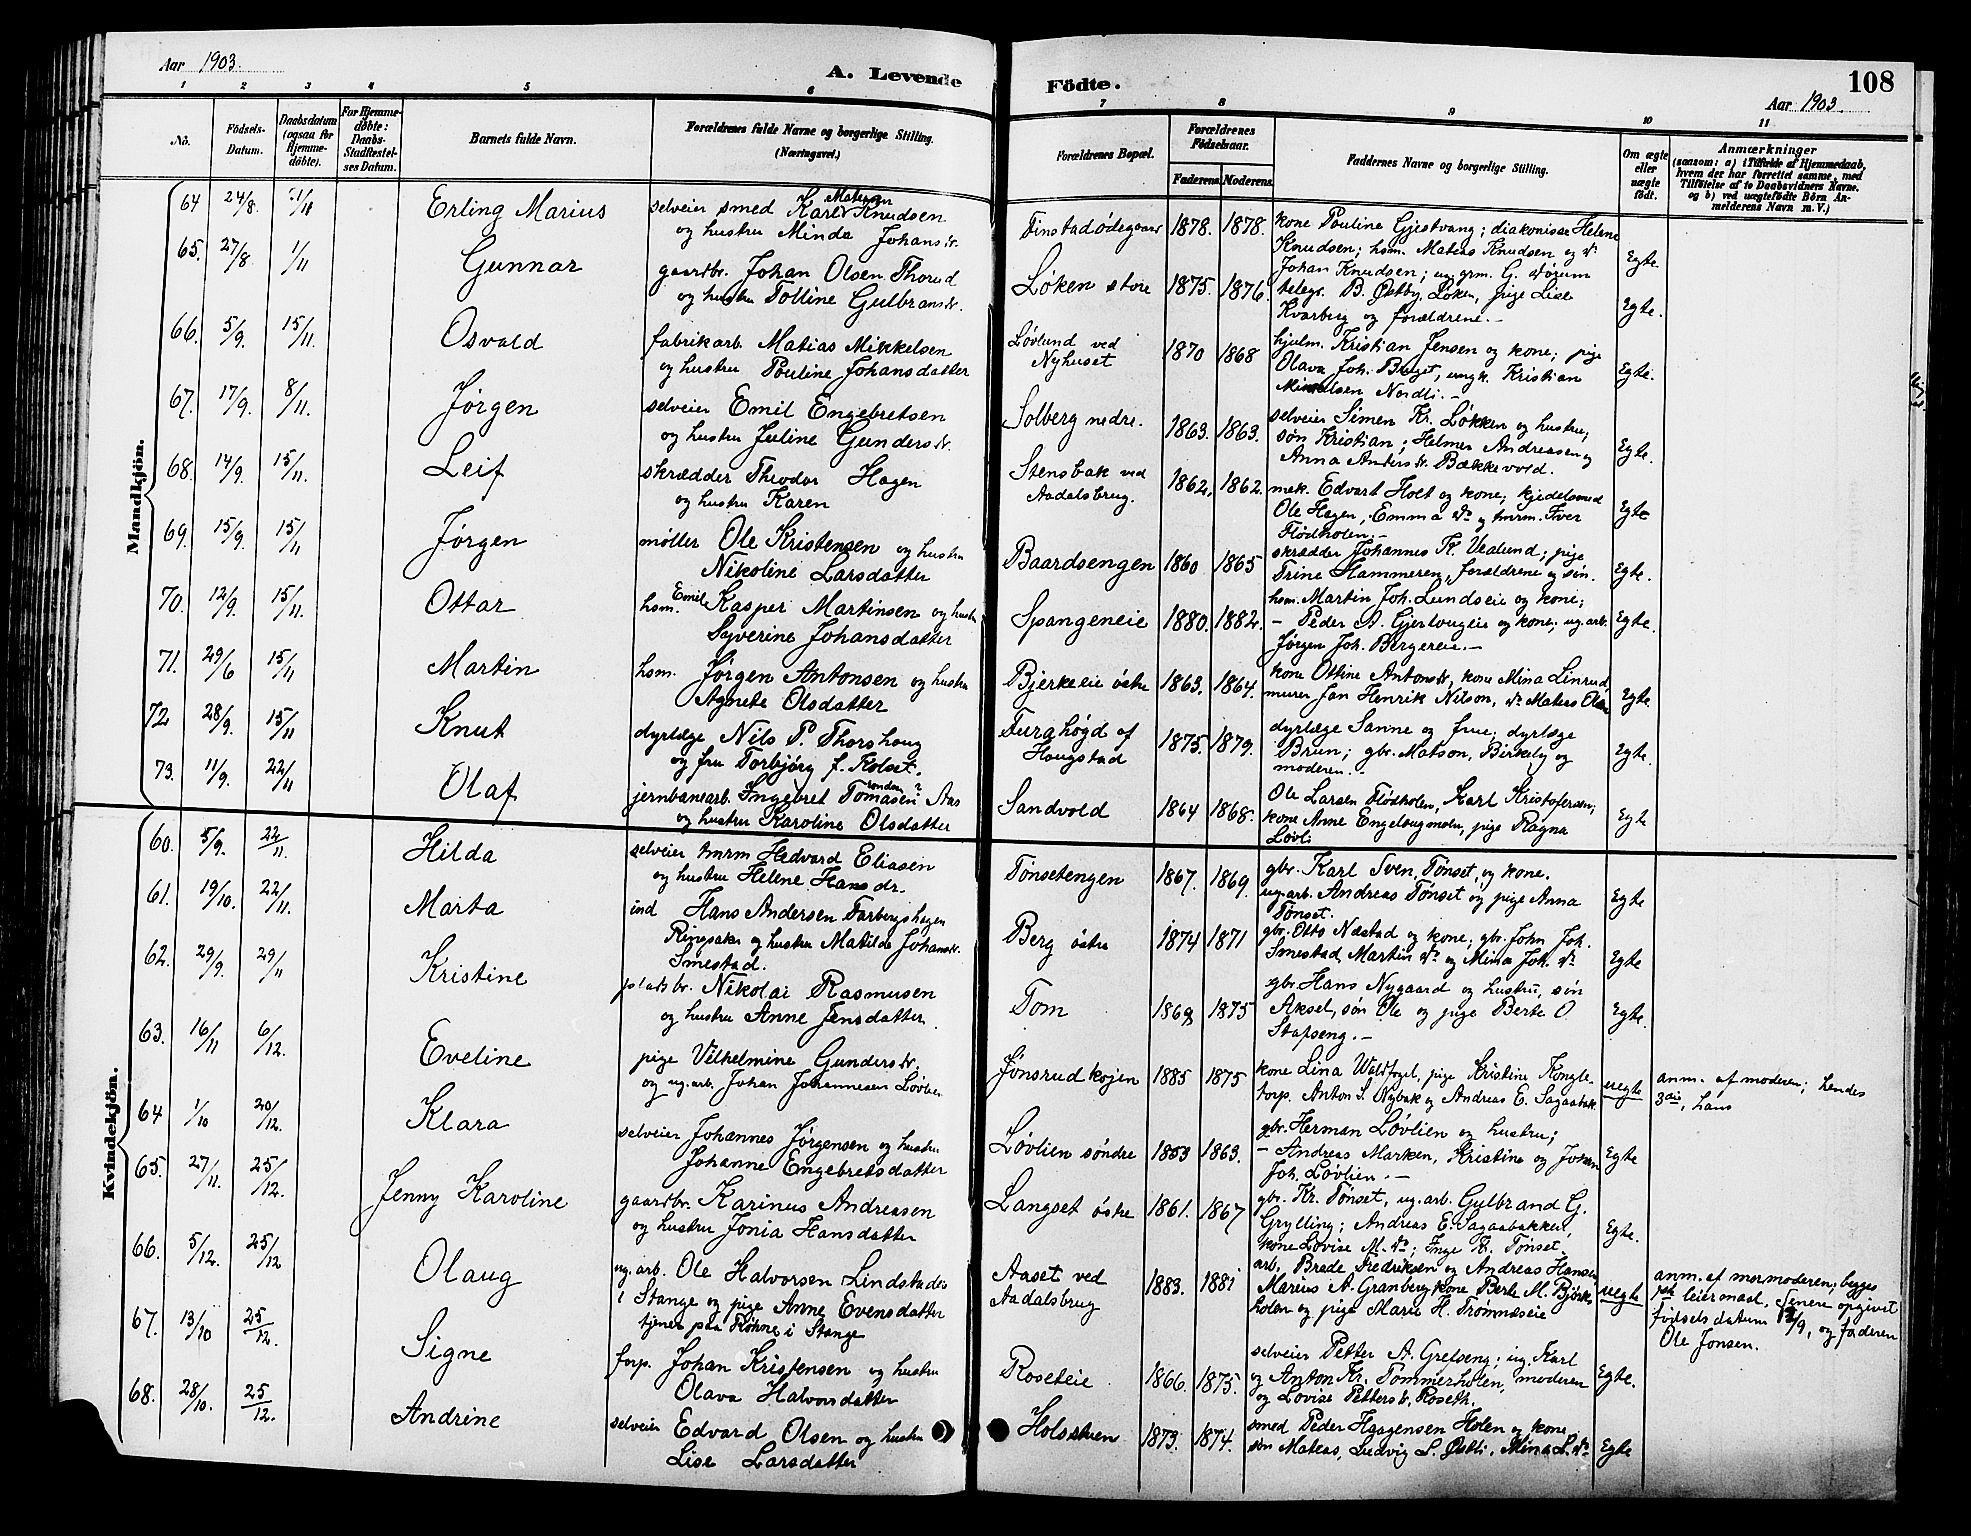 Aar 1903.
A. Levende
Födte.
108
Aar 1903
1 2 3 4 5 6 7 8 9 10 11
No.
Födsels-
Datum.
Daabsdatum
(ogsaa for
Hjemme-
döbte).
For Hjemme-
döbte:
Daabs-
Stadfæstel-
ses Datum.
Barnets fulde Navn.
Forældrenes fulde Navne og borgerlige Stilling.
(Næringsvei.)
Forældrenes Bopæl.
Forældrenes
Födselsaar.
Faderens. Moderens.
Faddernes Navne og borgerlige Stilling.
Om ægte
eller
uægte
født.
Anmærkninger
(saasom: a) i Tilfælde af Hjemmedaab,
hvem der har forrettet samme, med
Tilføielse af to Daabsvidners Navne.
og b) ved uægtefødte Børn An-
melderens Navn m. V.)
Mandkjön.
64 24/8. 1/11 Erling Marius
selveier smed Karl Knudsen
og hustru Minda Johansdr.
Finstadødegaard 1878. 1878.
kone Pouline Gjestvang; diakonisse Helene
Knudsen; hsm. Matias Knudsen og do
Egte.
65. 27/8. 1/11 Gunnar
gaardbr. Johan Olsen Thorud
og hustru Tolline Gulbransdr.
Løken store 1875. 1876.
Johan Knudsen; ug. grm. G.
telegr. B. Østby, Løken, pige Lise
Kvarberg og forældrene.-
Egte.
66. 5/9. 15/11. Osvald
fabrikarb. Matias Mikkelsen
og hustru Pouline Johansdatter
Løvlund ved
Nyhuset
1870 1868
hjulm. Kristian Jensen og kone; pige
Olava Joh. Berget, ungk. Kristian
Nordli.-
Egte.
67. 17/9. 8/11. Jørgen
selveier Emil Engebretsen
og hustru Juline Gundersdr.
Solberg nedre. 1863. 1863.
selveier Simen Kr. Løkken og hustru,
søn Kristian; Helmer Andreasen og
Anna Andersdr. Bækkevold.
Egte.
68. 14/9. 15/11. Leif
skrædder Theodor Hagen
og hustru Karen
Stensbak ved
Aadalsbrug.
1862, 1862.
mek. Edvart Holt og kone; kjedelsmed
Ole Hagen, Emma do og tmrm. Iver
Flødholen.-
Egte
69. 15/9. 15/11 Jørgen
møller Ole Kristensen og hustru
Nikoline Larsdatter
Baardsengen 1860 1865
skrædder Johannes K. Vealund; pige
Trine Hammeren, forældrene og søn.
Egte.
70. 12/9. 15/11. Ottar
hsm. Emil Kasper Martinsen og hustru
Syverine Johansdatter
Spangeneie 1880. 1882.
hsm. Martin Joh. Lundseie og kone;
- Peder A. Gjerlougeie og kone; ug. arb.
Jørgen Joh. Bergereie.-
Egte.
71. 29/6 15/11 Martin
hsm. Jørgen Antonsen og hustru
Agnete Olsdatter
Bjerkeeie østre 1863. 1864.
kone Ottine Antonsdr, kone Mina Linrud,
murer Jan Henrik Nilson, do Matias Olsen
Egte.
72 28/9. 15/11 Knut
dyrlæge Nils P. Thorshaug
og fru Torbjørg f. Kolset.
Furuhøgd af
Haugstad
1875. 1879.
dyrlæge Sanne og frue; dyrlæge
Brun; gbr. Matson, Birkely og
moderen.-
Egte.
73. 11/9. 22/11 Olaf
jernbanearb. Ingebret Tomasen Aas
og hustru Karoline Olsdatter
Sandvold 1864 1868.
Ole Larsen Flødholen, Karl Kristofersen;
kone Anne Engelaugmoen, pige Ragna
Løvli
Egte
Kvindekjön.
60. 5/9. 22/11. Hilda
selveier tmrm Hedvard Eliasen
og hustru Helene Hansdr.
Tønsetengen 1867. 1869.
gbr. Karl Sven. Tønset, og kone.
ug. arb. Andreas Tønset og pige Anna
Tønset.
Egte
61. 19/10. 22/11. Marta
ind Hans Andersen Farbergshagen
Ringsaker og hustru Matilde Johansdr.
Smestad.
Berg østre 1874 1871
gbr. Otto Næstad og kone; gbr. John Joh.
Smestad, Martin do og Mina Joh. do
Egte
62. 29/9. 29/11 Kristine
pladsbr. Nikolai Rasmusen
og hustru Anne Jensdatter.
Tom 1869 1875
gbr. Hans Nygaard og hustru, søn
Aksel, søn Ole og pige Berte O
Stafseng.-
Egte.
63. 16/11 6/12. Eveline
pige Vilhelmine Gundersdr.
og ug. arb. Johan Johannesen Løvlien
Jønsrudkojen 1885 1875
kone Lina Waldfogel, pige Kristine Kongle-
torp. Anton S. Nybak og Andreas E. Sagaabak.
uegte
anm. af moderen; hendes
3die, hans
64 1/10 20/12. Klara
selveier Johannes Jørgensen og hustru
Johanne Engebretsdatter
Løvlien søndre 1853 1863.
gbr. Herman Løvlien og hustru;
- Andreas Marken, Kristine og Johan
Joh. Løvlien.-
Egte
65. 27/11. 25/12. Jenny Karoline
gaardbr. Karinus Andreasen
og hustru Jonia Hansdatter
Langset østre 1861. 1867
gbr. Kr. Tønset, ug. arb. Gulbrand G.
Grylling; Andreas E. Sagaabakken,
kone Lovise M. do; Inge K. Tønset.
Egte.
66. 5/12. 25/12 Olaug
ug. arb. Ole Halvorsen Lindstadeie
i Stange og pige Anne Evensdatter
tjener paa Røhne i Stange
Aaset ved
Aadalsbrug
1883. 1881
arb. Brede Fredriksen og Andreas Hansen
Marius A. Granberg kone Berte M. Bjørke-
holen og pige Marie H. Trommæseie
uegte
anm. af mormoderen; begges
1ste leiermaal. Senere opgivet
fødselsdatum 12/9, og faderen
Ole Jonsen.
67. 13/10 25/12. Signe
forp. Johan Kristensen og hustru
Olava Halvorsdatter
Roseteie 1866. 1875.
selveier Petter A. Grefseng; ug. Karl
og Anton Kr. Tømmerholen, moderen
og Lovise Pettersdr. Roseth.
Egte.
68. 28/10. 25/12. Andrine
selveier Edvard Olsen og hustru
Lise Larsdatter
Holsstuen 1873. 1874.
smed Peder Haagensen Holen og kone
søn Mateas, Ludvig L. Østli, Mina L. do
Egte